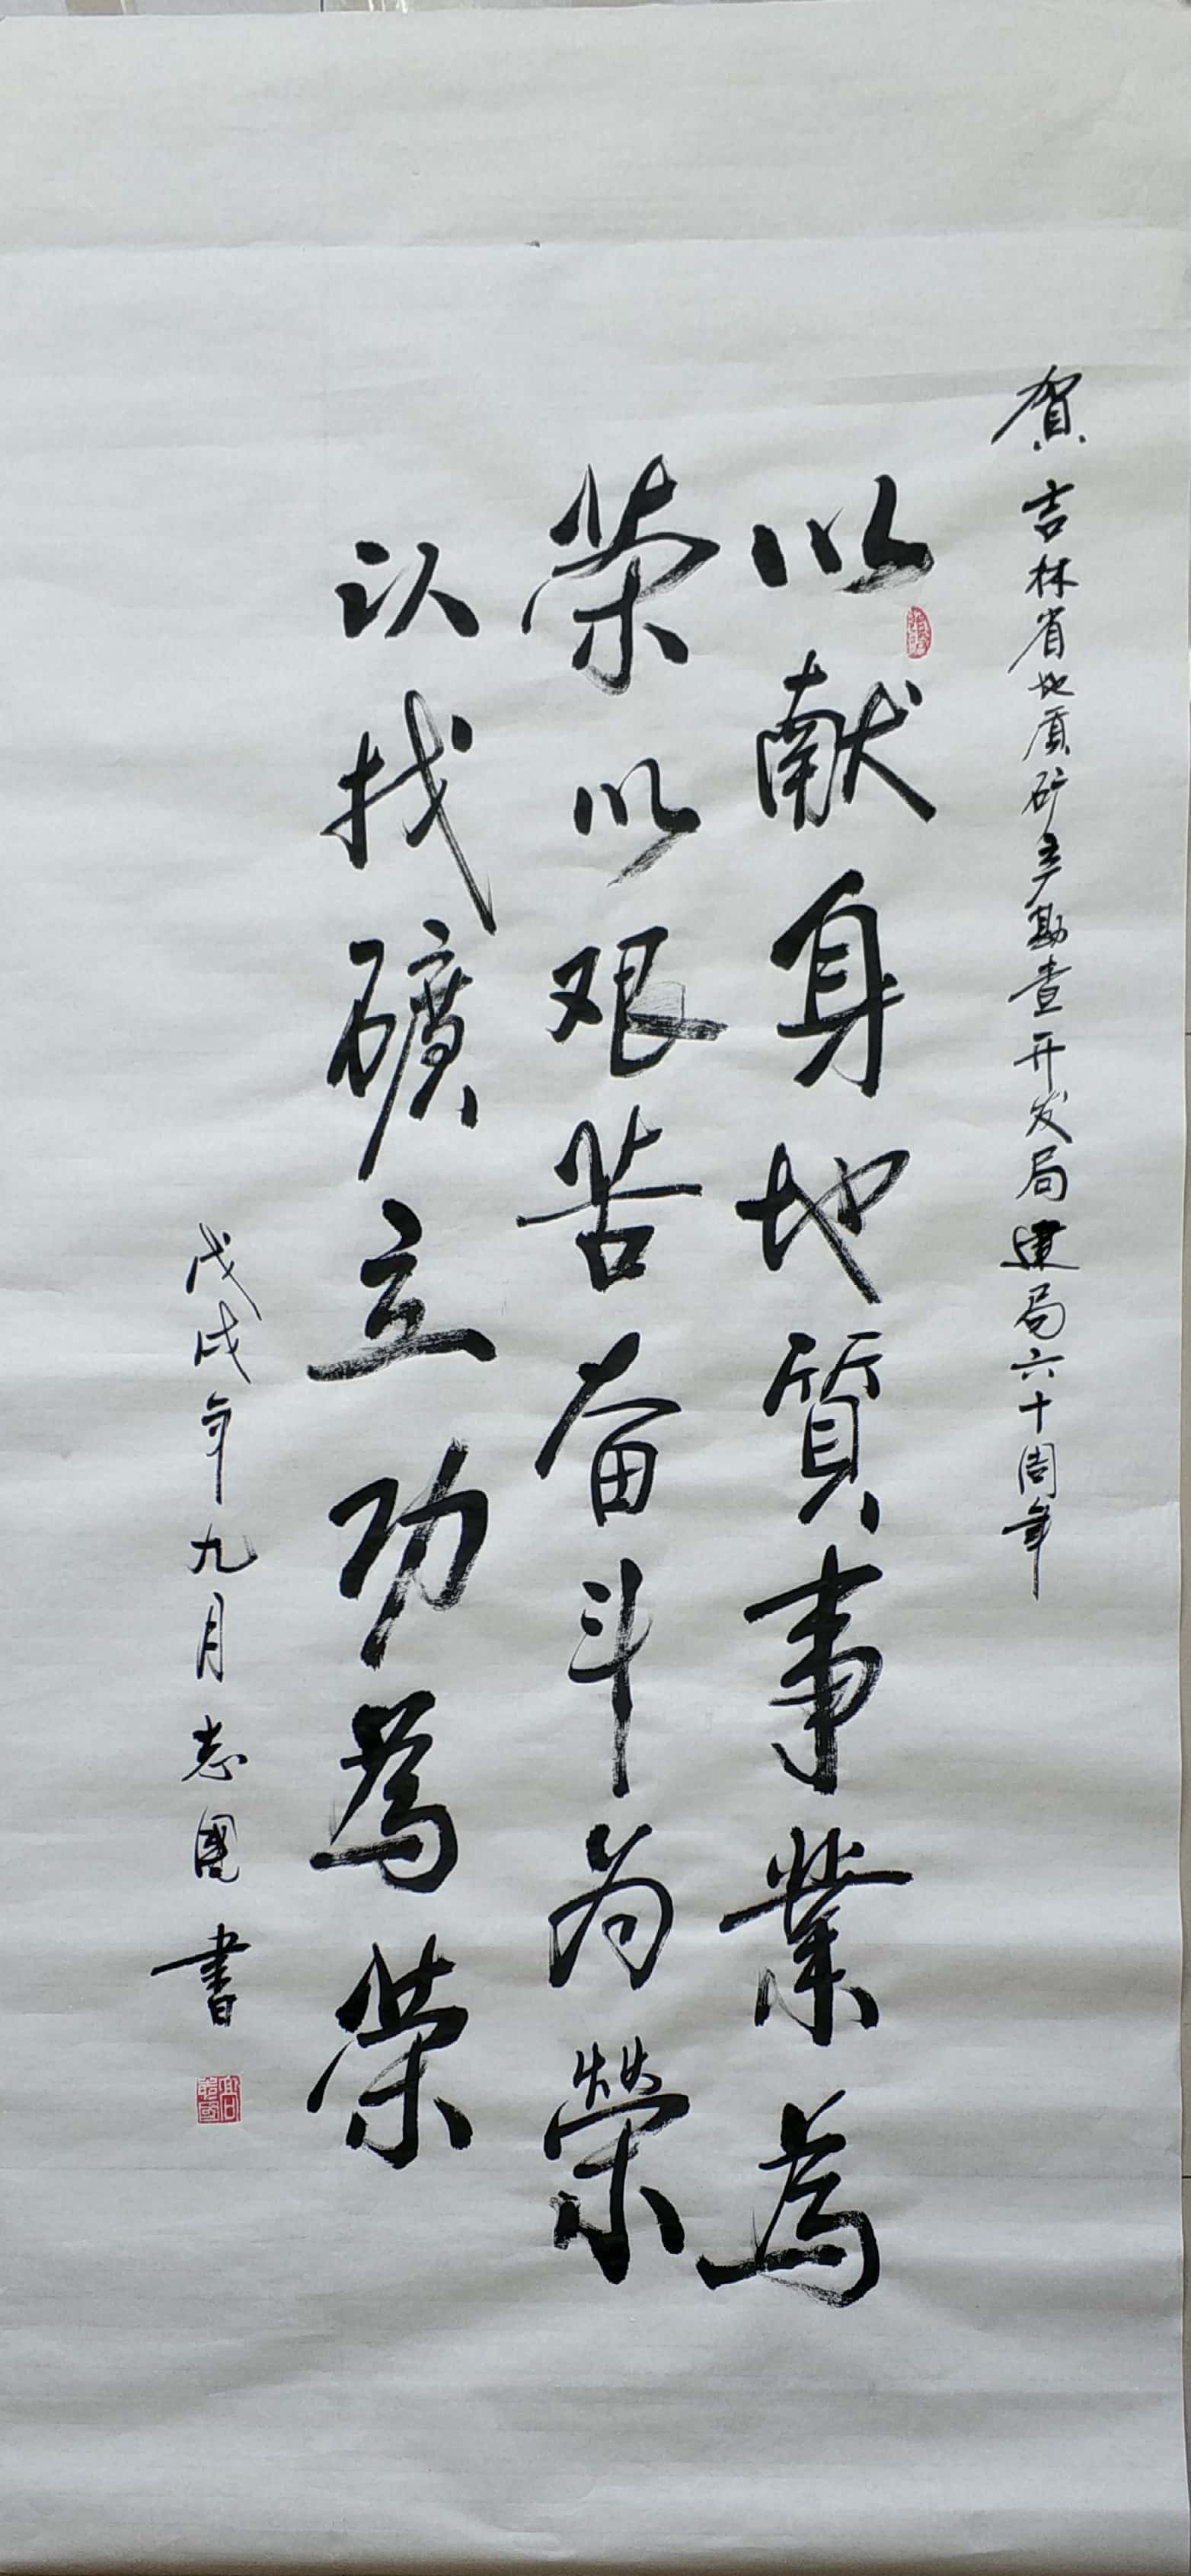 贺吉林省地质矿产勘查开发局建局六十周年
以献身地質事業為
荣以艰苦奋斗为榮
以找礦立功為荣
戊戌年九月志國書